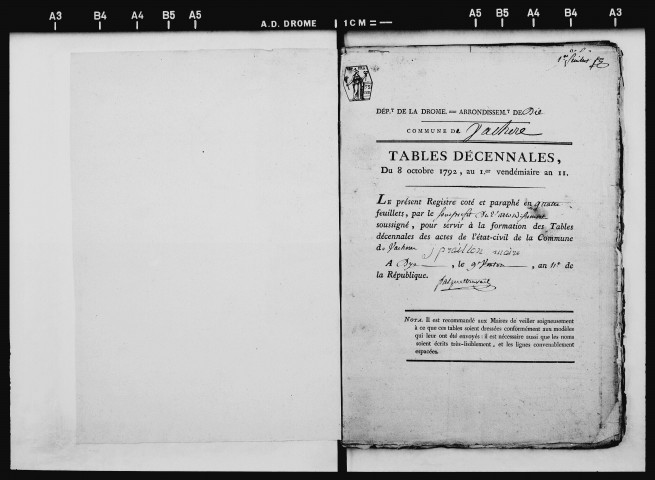 A3 B4 A4 B5 A5 A.D. DROME 1 CM = A5 B5 A4 B4 A3
1.er feuillet
DÉP.T DE LA DROME. = ARRONDISSEM.T DE Die
COMMUNE De Vachere
TABLES DÉCENNALES,
Du 8 octobre 1792, au 1.er vendémiaire an 11.
LE présent Registre coté et paraphé en quatre
feuillets, par le sousprefet de l'arrondissement
soussigné, pour servir à la formation des Tables
décennales des actes de l'état-civil de la Commune
de Vachere maire
A Dye, le 9e, an 11e de
la République.
NOTA. Il est recommandé aux Maires de veiller soigneusement
à ce que ces tables soient dressées conformément aux modèles
qui leur ont été envoyés : il est nécessaire aussi que les noms
soient écrits très-lisiblement, et les lignes convenablement
espacées.